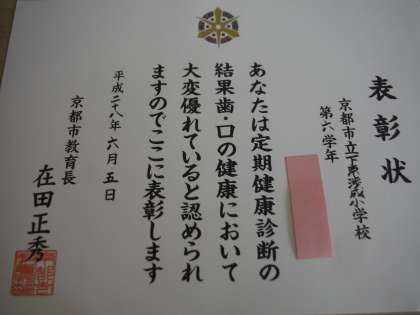 表彰状
京都市立下京渉成小学校
第六学年
あなたは定期健康診断の
結果歯・口の健康において
大変優れていると認められ
ますのでここに表彰します
平成二十八年六月五日
京都市教育長
在田正秀